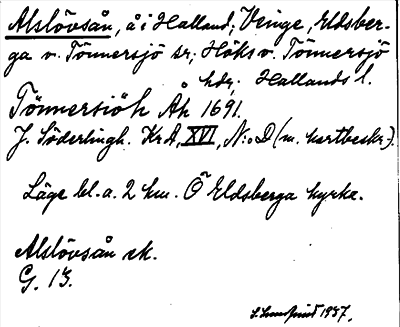 Alslövsån, å i Halland; Veinge, Eldsber-
ga v. Tönnersjö sn; Höks v. Tönnersjö
hdr; Hallands l.
Tönnersiöh Åh 1691.
J. Söderlingh. KrA, XVI, N:o D (m. kartbeskr.).
Läge bl.a. 2 km. Ö Eldsberga kyrka.
Alslövsån ek.
G. 13.
1937.